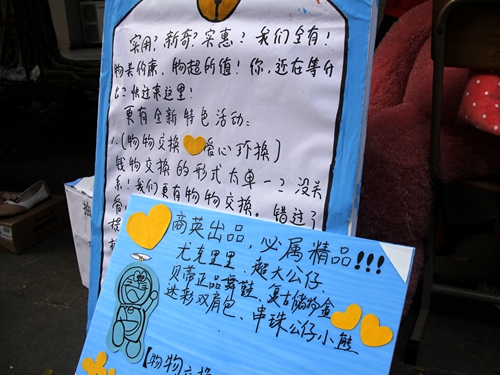 实用？新奇？实惠？我们全有！
物美价廉，物超所值！你，还在等什
么？快过来这里！
更有全新特色活动：
1.（物物交换 爱心环换）
钱物交换的形式太单一？没关
系！我们更有物物交换。错过了
商英出品，必属精品!!!
尤克里里、超大公仔、
贝蒂正品 鞋、复古储物盒
迷彩双肩包、串珠公仔小熊
【物物交换